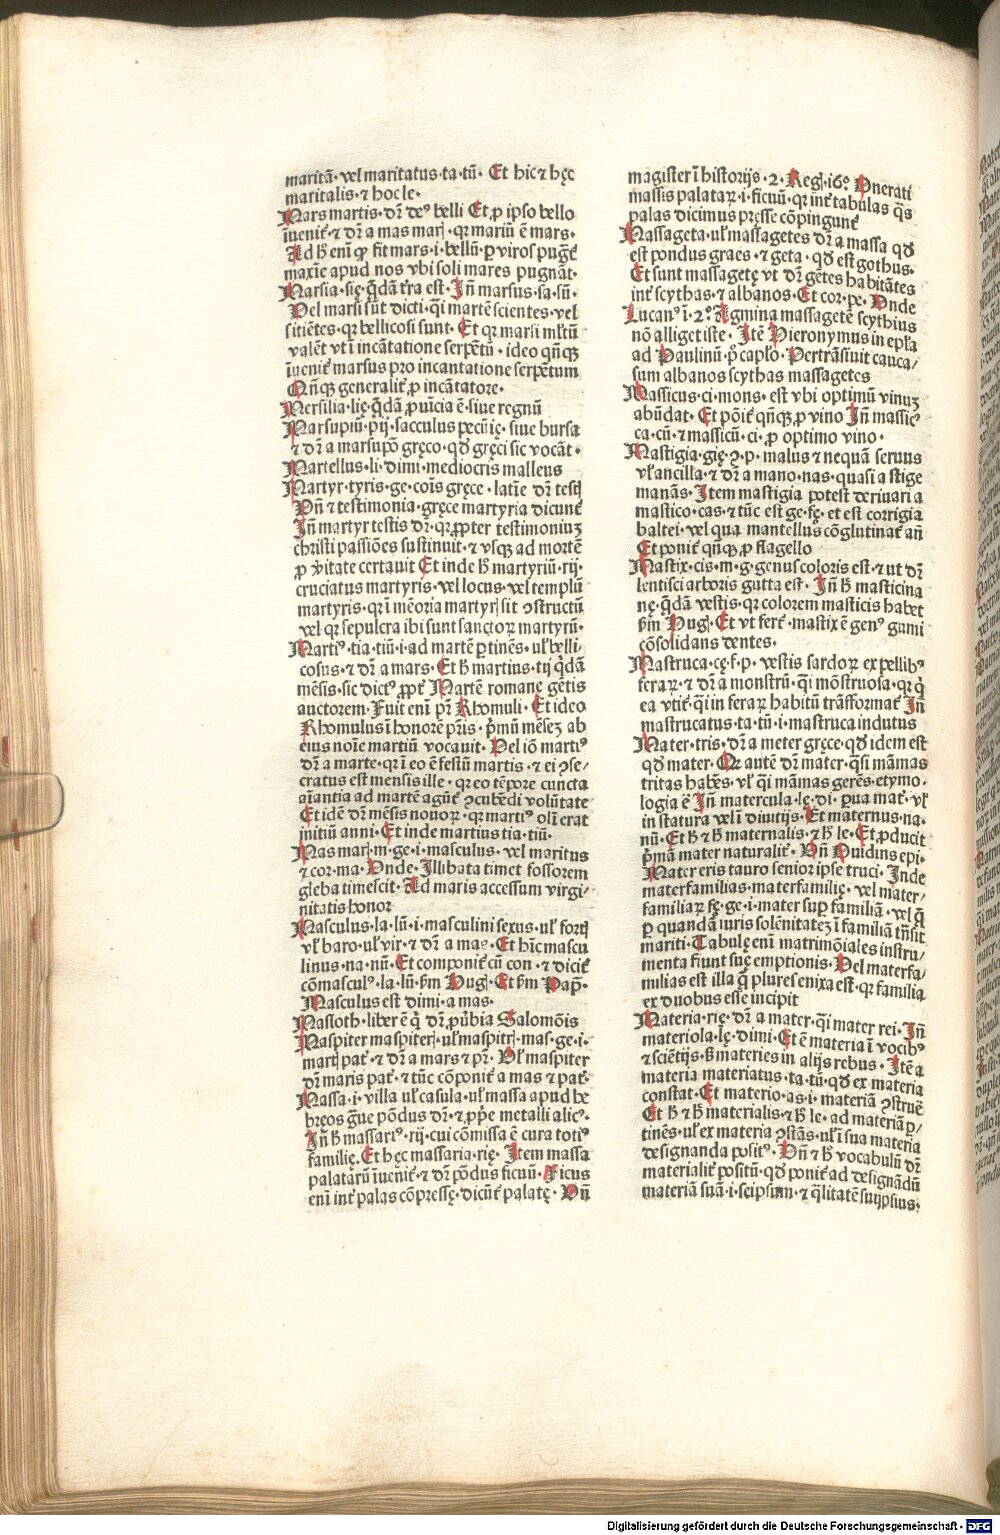 maritā· vel maritatus·ta·tū· Et hic ⁊ hęc
maritalis·⁊ hoc le·
Mars martis· dr̄ deꝰ belli Et ꝓ ipso bello
īuenit̄·⁊ dr̄ a mas marꝭ·qꝛ mariū ē mars·
Ad h̄ eni ꝙ fit mars·i·bellū·ꝑ viros pugēt
maxīe apud nos vbi soli mares pugnāt·
Marsia·się·q̄dā t̄ra est· Jn̄ marsus·sa·sū·
Vel marsi sūt dicti·q̄i martē scientes·vel
sitiētes·qꝛ bellicosi sunt· Et qꝛ marsi ml̄tū
valēt vti incātatione serpētū·ideo qn̄qꝫ
īuenit̄ marsus pro incantatione serpētum
Qn̄qꝫ generalit̄ ꝓ incātatore·
Mersilia·lię·q̄dā ꝓuīcia ē·siue regnū
Marsupiū·pij·sacculus pecūię·siue bursa
⁊ dr̄ a marsupō gręco·qd̄ gręci sic vocāt·
Martellus·li·dimi·mediocris malleus
Martyr·tyris·ge·cois gręce·latīe dr̄ testꝭ
Vn̄ ⁊ testimonia·gręce martyria dicunt̄
Jn̄ martyr testis dr̄·qꝛ ꝓpter testimoniuꝫ
christi passiōes sustinuit·⁊ vsqꝫ ad mortē
ꝓ v̄itate certauit Et inde h̄ martyriū·rij·
cruciatus martyris·vel locus·vel templū
martyris·qꝛ i mēoria martyrꝭ sit ꝯstructū
vel qꝛ sepulcra ibi sunt sanctoꝝ martyrū·
Martiꝰ·tia·tiū·i·ad martē ꝑtinēs·ul̄ belli-
cosus·⁊ dr̄ a mars·Et h̄ martius·tij q̄dā
mēsis·sic dictꝰ ꝓpt̄ Martē romanę gētis
auctorem·Fuit eni pr̄ Rhomuli·Et ideo
Rhomulus i honorē pr̄is·p̄mū mēseꝫ ab
eius noīe martiū vocauit·Vel iō martiꝰ
dr̄ a marte·qꝛ i eo ē festiū martis·⁊ ei ꝯse-
cratus est mensis ille·qꝛ eo tēpore cuncta
aīantia ad martē agūt̄ ꝯcubēdi volūtate
Et idē dr̄ mēsis nouoꝝ·qꝛ martiꝰ oli erat
initiū anni·Et inde martius tia·tiū·
Mas marꝭ·m·ge·i·masculus·vel maritus
⁊ cor·ma·Vnde·Jllibata timet fossorem
gleba timescit·Ad maris accessum virgi-
nitatis honor
Masculus·la·lū·i·masculini sexus·ul̄ fortꝭ
vl̄ baro·ul̄ vir·⁊ dr̄ a mas·Et hīc mascu
linus·na·nū·Et componit̄ cū con·⁊ dicit̄
cōmasculꝰ·la·lū·ẜm Hugꝭ·Et ẜm Papꝭ·
Masculus est dimi·a mas·
Masloth·liber ē q̄ dr̄ ꝓūbia Salomōis
Maspiter maspiterꝭ·ul̄ maspitrꝭ·mas·ge·i·
martꝭ pat̄·⁊ dr̄ a mars ⁊ pr̄·Vl̄ maspiter
dr̄ maris pat̄·⁊ tūc cōponit̄ a mas ⁊ pat̄·
Massa·i·villa ul̄ casula·ul̄ massa apud he
bręos g̈ue pōdus dr̄·⁊ ꝓpe metalli alicꝰ·
Jn̄ h̄ massariꝰ·rij·cui cōmissa ē cura totiꝰ
familię·Et hęc massaria·rię·Jtem massa
palatarū īuenit̄·⁊ dr̄ pōdus ficuū·Ficus
eni int̄ palas cōpressę·dicūt̄ palatę·Vn̄
magister i historijs·2·Regꝭ·16º Onerati
massis palataꝝ·i·ficuū·qꝛ int̄ tabulas q̄s
palas dicimus pręsse cōpingunt̄
Massageta·ul̄ massagetes dr̄ a massa qd̄
est pondus graes·⁊ geta·qd̄ est gothus·
Et sunt massagetę vt dr̄ gētes habitātes
int̄ scythas·⁊ albanos·Et cor·pe·Vnde
Lucanꝰ i·2º Agmina massagetē scythius
nō alligetister·Jtē Hieronymus in epl̄a
ad Paulinū·pº capl̄o·Pertrāsiuit cauca/
sum albanos scythas massagetes
Massicus·ci·mons·est vbi optimū vinuꝫ
abūdat·Et pōit̄ qn̄qꝫ ꝓ vino Jn̄ massicꝰ
ca·cū·⁊ massicū·ci·ꝓ optimo vino·
Mastigia·gię·ꝯ·p·malus ⁊ nequā seruus
vl̄ ancilla·⁊ dr̄ a mano·nas·quasi a stige
manās·Jtem mastigia potest deriuari a
mastico·cas·⁊ tūc est ge·fę·et est corrigia
baltei·vel qua mantellus cōglutinat̄ an̄
Et ponit̄ qn̄qꝫ ꝓ flagello
Mastix·cis·m·g·genus coloris est·⁊ ut dr̄
lentisci arboris gutta est·Jn̄ h̄ masticina
nę·q̄dā vestis·qꝛ colorem masticis habet
ẜm Hugꝭ·Et vt fert̄·mastix ē genꝰ gumi
cōsolidans dentes·
Mastruca·cę·f·p·vestis sardoꝝ ex pellibꝰ
feraꝝ·⁊ dr̄ a monstrū·q̄i mōstruosa·qꝛ q̄
ea vtit̄·q̄i in feraꝝ habitū trāsformat̄ Jn̄
mastrucatus·ta·tū·i·mastruca indutus
Mater·tris·dr̄ a meter gręce·qd̄ idem est
qd̄ mater·Qꝛ autē dr̄ mater·q̄si māmas
tritas habēs·vl̄ q̄i māmas gerēs·etymo-
logia ē Jn̄ matercula·lę·di·ꝑua mat̄·vl̄
in statura vel i diuitijs·Et maternus·na·
nū·Et h̄ ⁊ h̄ maternalis·⁊ h̄ le·Et ꝓducit
p̄mā mater naturalit̄·Vn̄ Ouidius epi·
Mater eris tauro senior ipse truci·Jnde
materfamilias·materfamilię·vel mater/
familiaꝝ fę·ge·i·mater suꝑ familiā·vel q̄
ꝑ quandā iuris solēnitateꝫ i familiā trāsit
mariti·Tabulę eni matrimōiales instru/
menta fiunt suę emptionis·Vel materfa/
milias est illa q̄ plures enixa est·qꝛ familia
ex duobus esse incipit
Materia·rię·dr̄ a mater·q̄i mater rei·Jn̄
materiola·lę·dimi·Et ē materia i vocibꝰ
⁊ sciētijs·h̄ materies in alijs rebus·Jtē a
materia materiatus·ta·tū·qd̄ ex materia
constat·Et materio·as·i·materiā ꝯstruē
Et h̄ ⁊ h̄ materialis·⁊ h̄ le·ad materiā ꝑ/
tinēs·ul̄ ex materia ꝯstās·ul̄ i sua materia
designanda positꝰ·Vn̄ ⁊ h̄ vocabulū dr̄
materialit̄ positū·qd̄ ponit̄ ad designādū
materiā suā·i·seipsum·⁊ q̄litatē suijpsius·
Digitalisierung gefördert durch die Deutsche Forschungsgemeinschaft - DFG